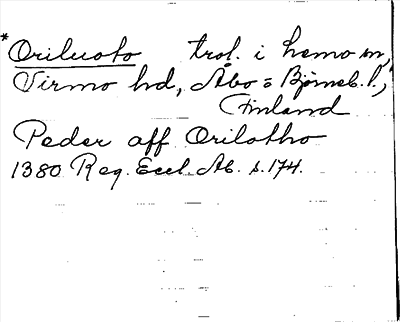 *Oriluoto trol. i Lemo sn,
Virmo hd, Åbo o Björneb. l.,
Finland
Peder aff Orilotho
1380 Reg. Eccl. Ab. s. 174.